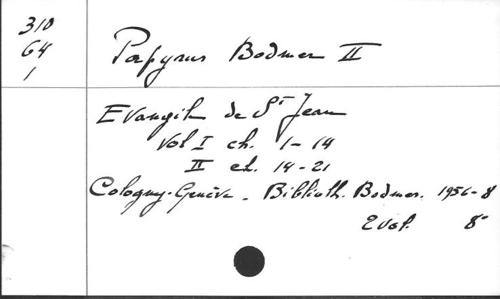 310
64
1
Papyrus Bodmer II
Evangile de St Jean
Vol I ch. 1-14
II ch. 14-21
Cologny-Genève. Biblioth. Bodmer. 1956-8
2 vol. 8°